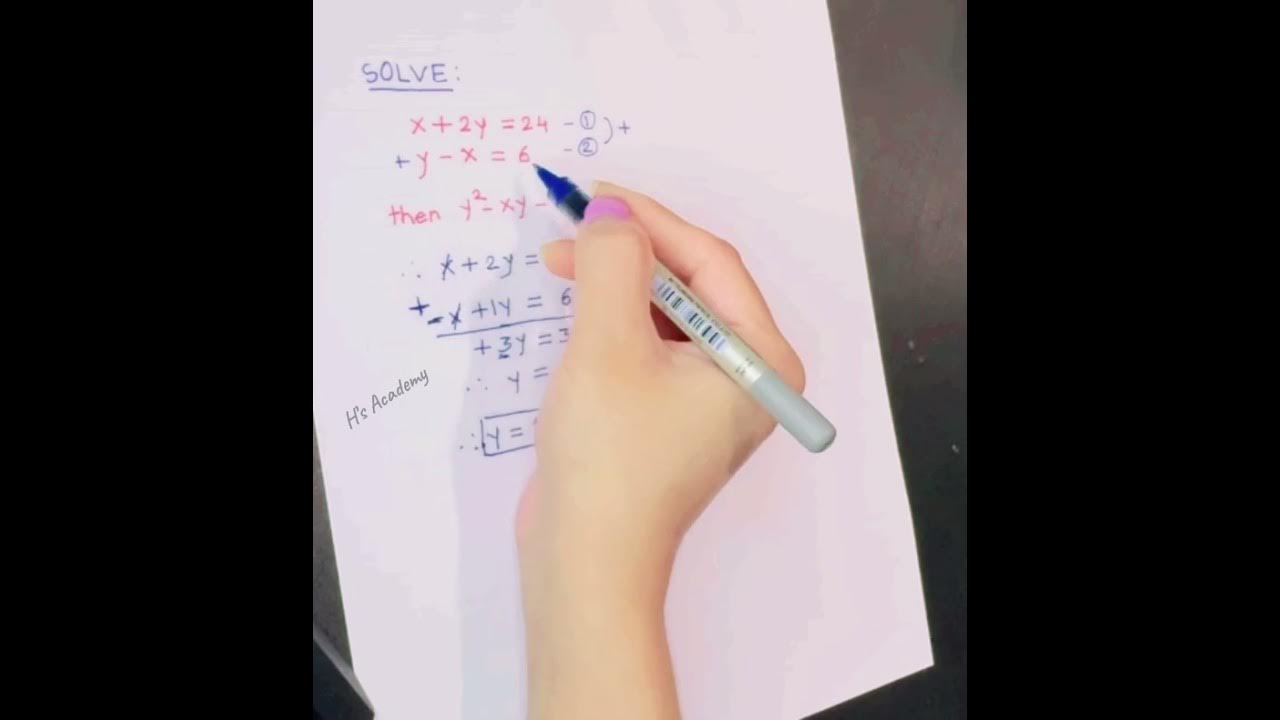 SOLVE:
x + 2y = 24 - ①
+ y - x = 6 - ② ) +
then y² - xy -
∴ x + 2y =
+ - x + 1y = 6
+ 3y = 3
∴ y =
∴ y =
H's Academy